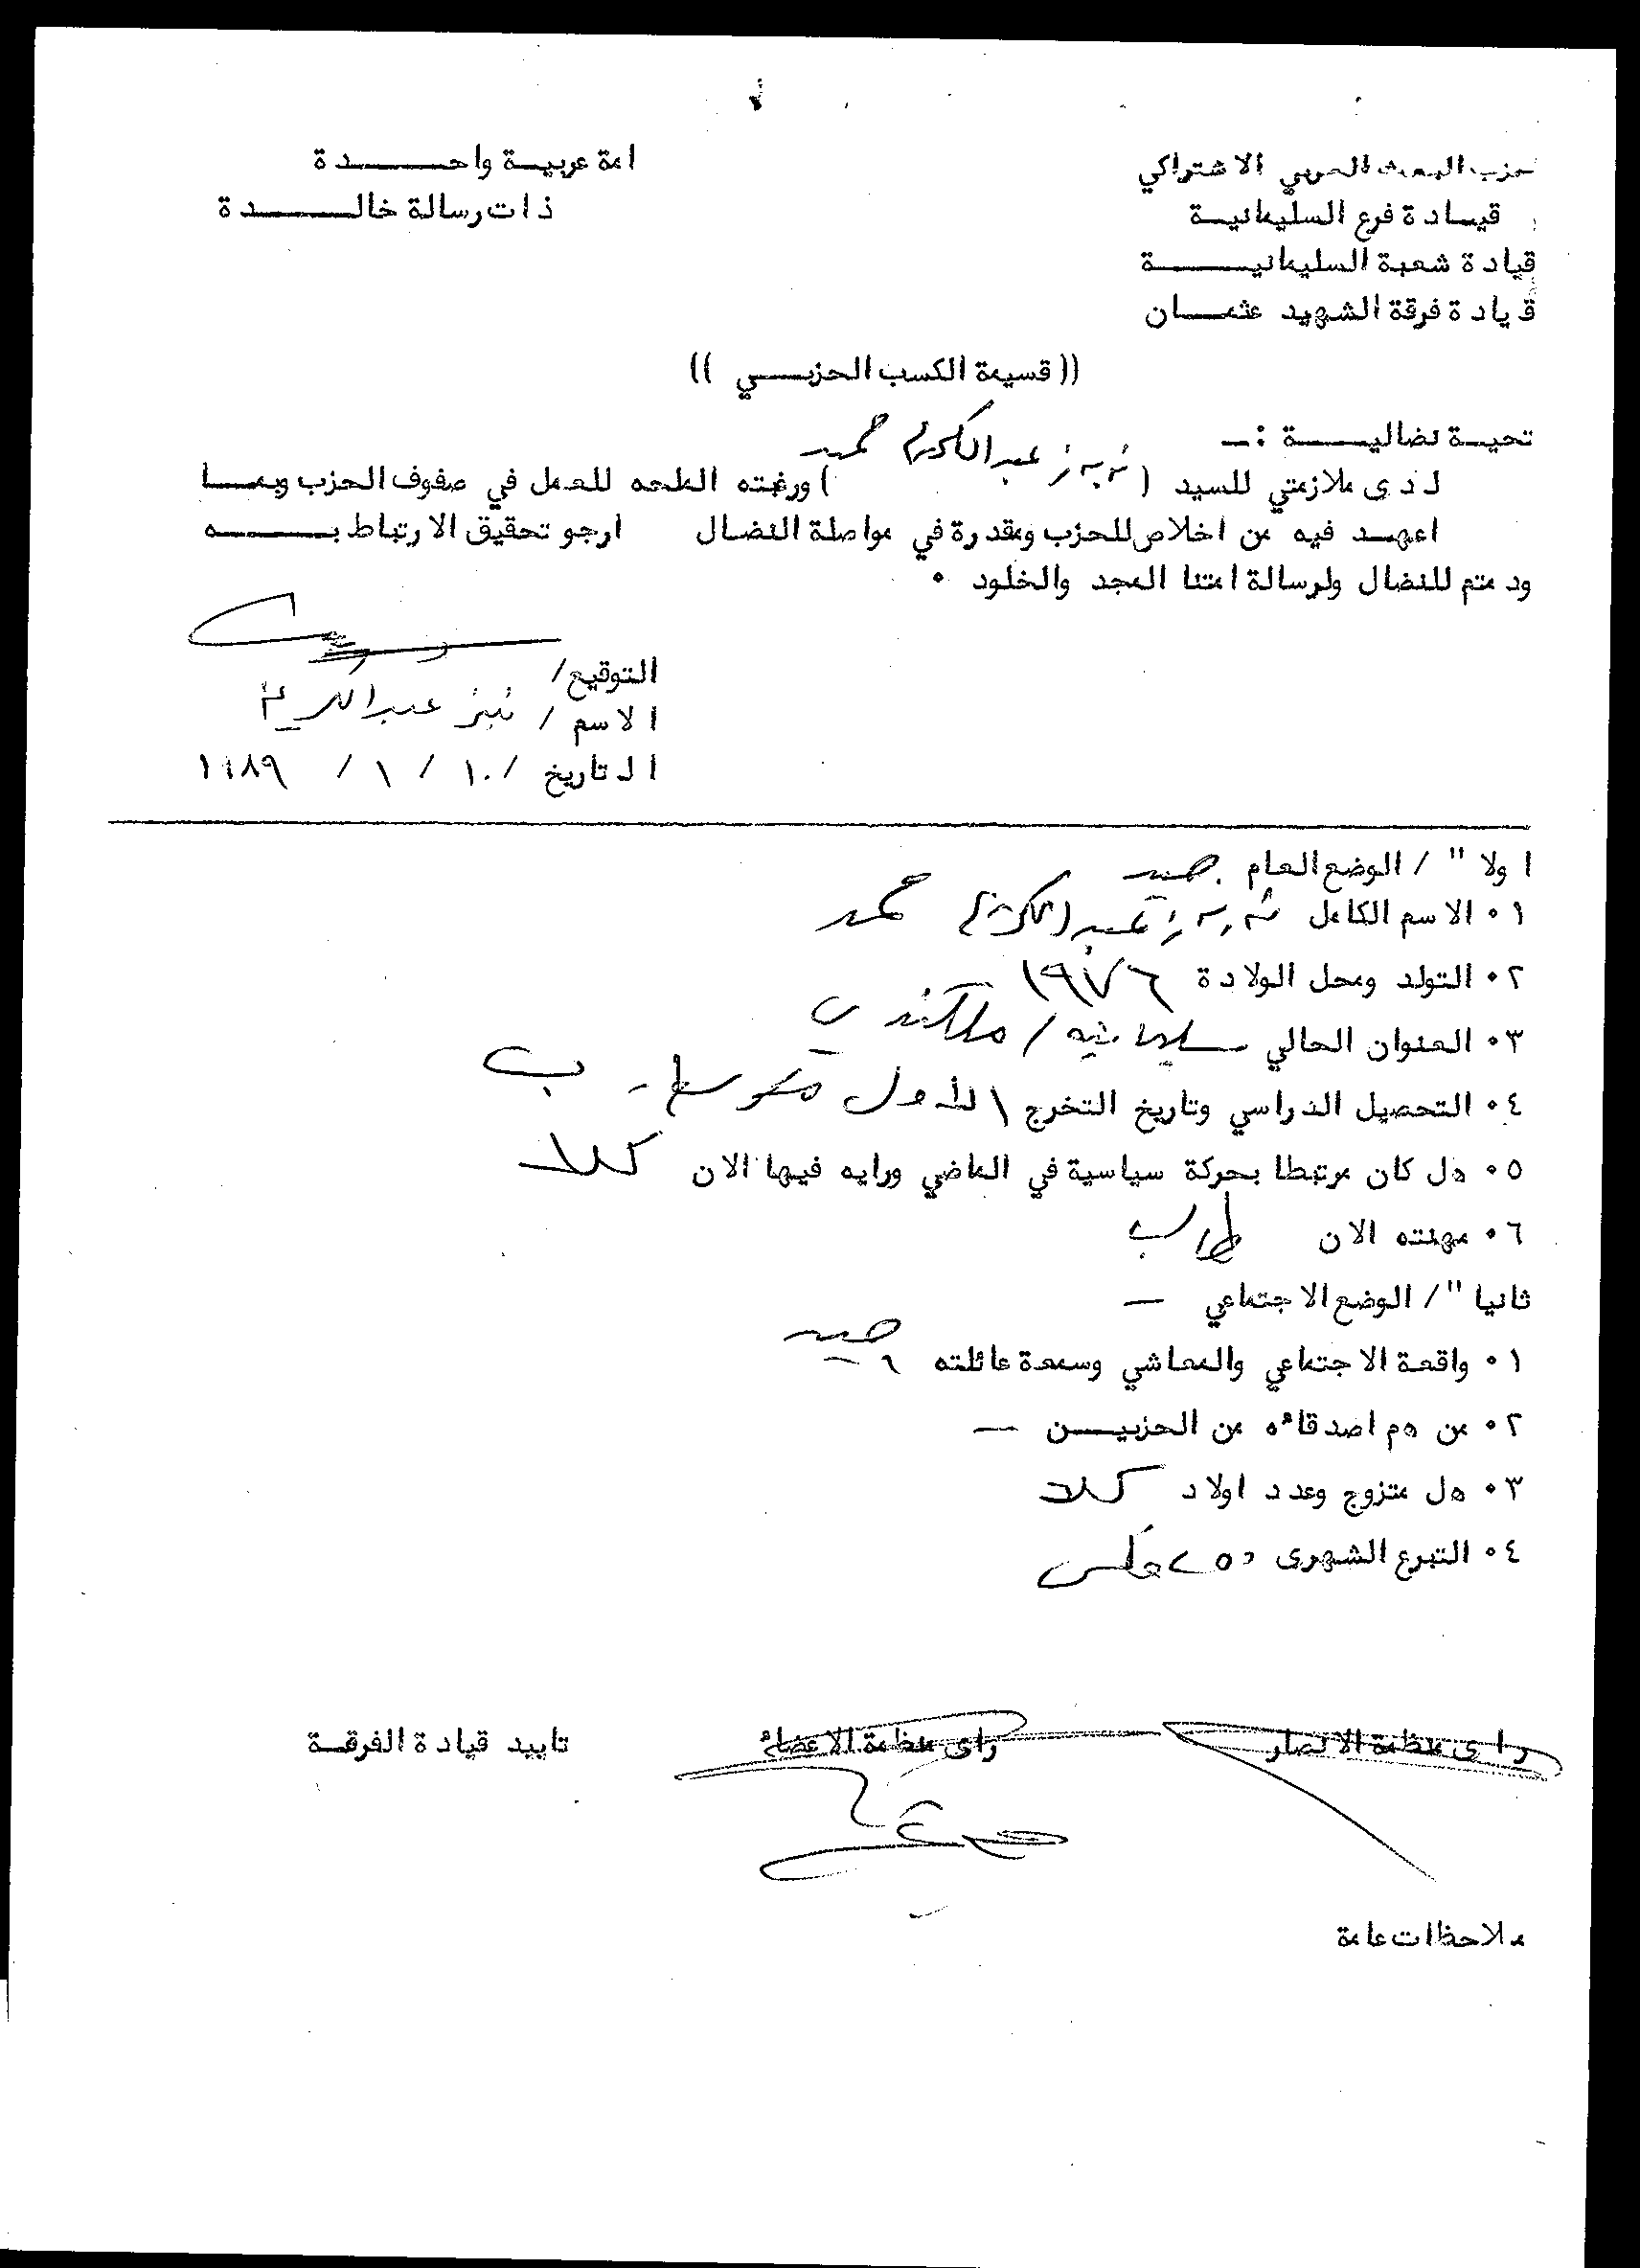 حزب البعث العربي الاشتراكي
قيادة فرع السليمانية
قيادة شعبة السليمانية
قيادة فرقة الشهيد عثمان
امة عربية واحدة
ذات رسالة خالدة
(( قسيمة الكسب الحزبي ))
تحية نضالية :ـ
لدى ملازمتي للسيد ( عبدالكريم حمد ) ورغبته الملحه للعمل في صفوف الحزب وبما
اعهد فيه من اخلاص للحزب ومقدرة في مواصلة النضال ارجو تحقيق الارتباط به
ودمتم للنضال ولرسالة امتنا المجد والخلود ٠
التوقيع/
الاسم / عبدالكريم
التاريخ / ١٠ / ١ / ١٩٨٩
اولا " / الوضع العام جيد
١٠ الاسم الكامل عبدالكريم حمد
٢٠ التولد ومحل الولادة ١٩٧٦
٣٠ العنوان الحالي سليمانيه / ملكندي
٤٠ التحصيل الدراسي وتاريخ التخرج الاول متوسط - ب
٥٠ هل كان مرتبطا بحركة سياسية في الماضي ورايه فيها الان كلا
٦٠ مهنته الان طالب
ثانيا "/ الوضع الاجتماعي —
١٠ واقعة الاجتماعي والمعاشي وسمعة عائلته جيد
٢٠ من هم اصدقائه من الحزبين —
٣٠ هل متزوج وعدد اولاد كلا
٤٠ التبرع الشهرى ٢٥٠ فلس
راى منظمة الانصار
راى منظمة الاعضاء
تاييد قيادة الفرقة
ملاحظات عامة